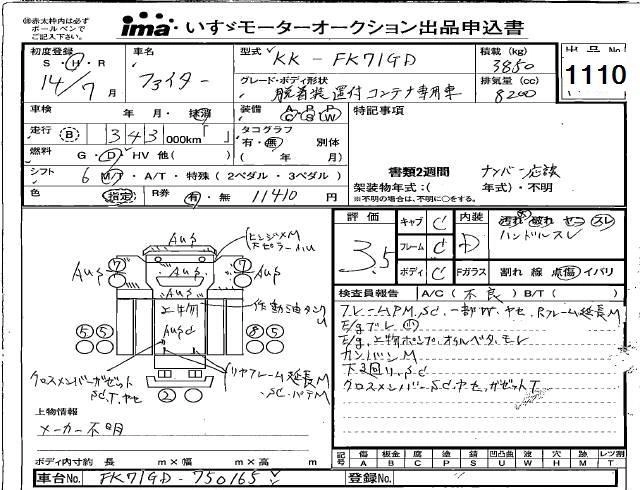 ※赤太枠内は必ず
ボールペンで
ご記入下さい。
ima いすゞモーターオークション出品申込書
初度登録
S・H・R
14/7 月
車名
ファイター
型式
KK-FK71GD
積載 (kg)
3850
グレード・ボディ形状
脱着装置付コンテナ専用車
排気量 (cc)
8200
出品No
1110
車検 年 月・抹消
装備 A/C P/S P/W
特記事項
走行 B 343 000km
タコグラフ
有・無 別体
( 年 月)
燃料 G・D・HV 他( )
シフト 6 M/T・A/T・特殊 (2ペダル・3ペダル)
書類2週間 ナンバー応談
架装物年式:( 年式)・不明
※不明の場合は、不明に○をする。
色 指定 R券 有・無 11410 円
評価
3.5
キャブ C
フレーム C
ボディ C
内装 D
Fガラス
汚れ 破れ ヤニ スレ
ハンドルスレ
割れ 線 点傷 イバリ
検査員報告 A/C ( 不良 ) B/T ( )
フレームPM、Sd、一部W、ヤセ、Rフレーム延長M
E/gブレ
E/g、上物ポンプ、オイルベタ、モレ
カンバンM
下3回り、Sd
クロスメンバー、Sd、ヤセ、ガゼットT
AUS
ヒンジメM
AUS
AUS
AUS
AUS
上物
作動油タンク
U
クロスメンバーガゼット
Sd、T、ヤセ
リヤフレーム延長M
上物情報
メーカー不明
ボディ内寸約 長 m×幅 m×高 m
記号 傷A 板金B 腐C 塗P 錆S 凹凸曲U 波W 穴H 跡M レツ割T
車台No. FK71GD-750165
登録No.